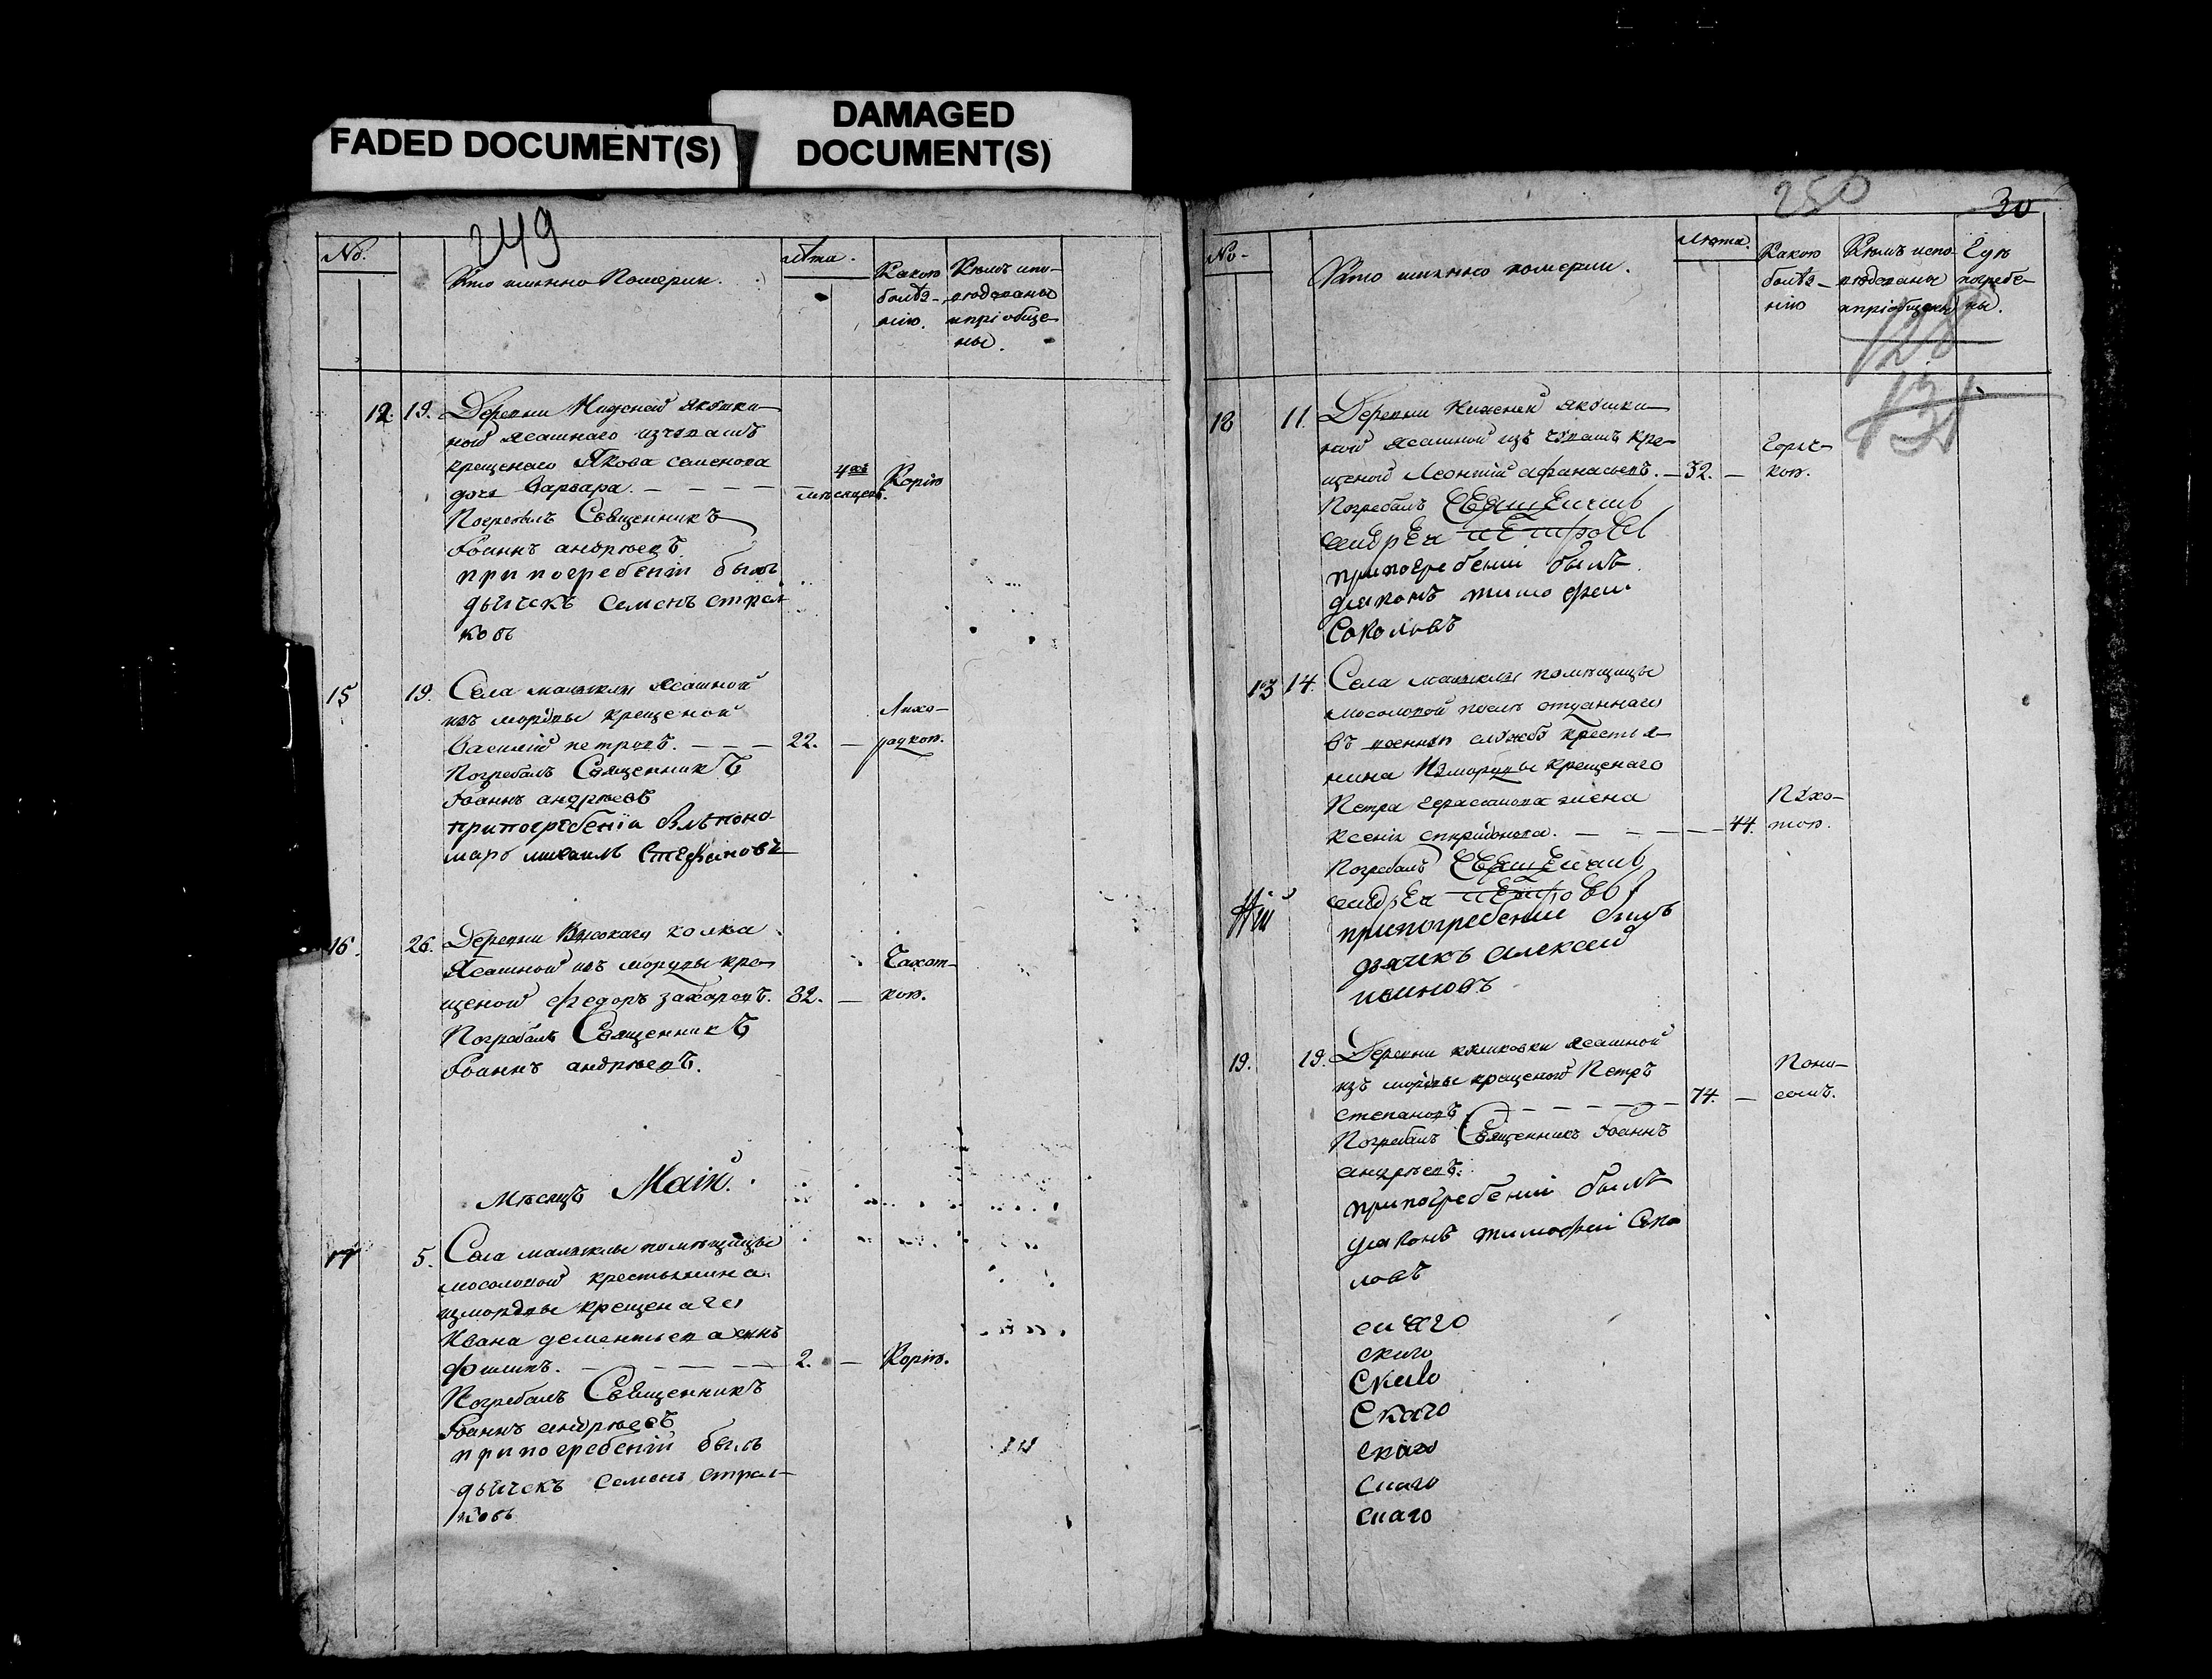 FADED DOCUMENT(S)
DAMAGED
DOCUMENT(S)
249
№.
Кто именно Померли.
Лѣта.
Какою
болѣз-
нію.
Кѣмъ испо-
вѣдованы
и пріобще-
ны.
12. 19. Деревни Нижней Якушки-
ной ясашнаго изчувашъ
крещенаго Якова семенова
дочь Варвара.
4хъ
мѣсяцовъ.
Корію
Погребалъ Священникъ
Іоаннъ андрѣевъ
при погребеніи былъ
дьячекъ Семенъ стрел
ковъ
15 19. Села малыклы Ясашной
изъ мордвы крещеной
Василій петровъ. 22.
Лихо-
радкою.
Погребалъ Священникъ
Іоаннъ андрѣевъ
припогребеніи былъ поно
марь михаилъ Стефановъ
16. 26. Деревни Высокаго колка
Ясашной изъ мордвы кре
щеной федоръ захаровъ. 32.
Чахот-
кою.
Погребалъ Священникъ
Іоаннъ андрѣевъ.
Мѣсяцъ Маій.
17 5. Села малыклы помѣщицы
мосоловой крестьянина
измордвы крещенаго
Ивана дементьева сынъ
филипъ. 2. Корію.
Погребалъ Священникъ
Іоаннъ андрѣевъ
при погребеніи былъ
дьячекъ Семенъ Стрел-
ковъ
250
30
№
Кто именно померли.
Лѣта.
Какою
болѣз-
нію
Кѣмъ испо-
вѣдованы
и пріобщены
Гдѣ
погребе-
ны.
128
131
18 11. Деревни Нижней якушки-
ной ясашной изъ чувашъ кре-
щеной Леонтій афанасьевъ. 32.
Горяч-
кою.
Погребалъ Священникъ
андрей петровъ
припогребеніи былъ
діаконъ тимофеи
Соколовъ
13 14. Села малыклы помѣщицы
мосоловой послѣ отданнаго
въ военную службу крестья-
нина Измордвы крещенаго
Петра жена
Ксенія спиридонова. 44.
Погребалъ Священникъ
андрей петровъ
припогребеніи былъ
дьячекъ алексей
ивановъ
19. 19. Деревни ясашной
изъ мордвы крещеной Петръ
степановъ 74.
Поно-
сомъ.
Погребалъ Священникъ Іоаннъ
андрѣевъ.
припогребеніи былъ
діаконъ тимофеи Соко
ловъ
скаго
скаго
Скаго
Скаго
скаго
Скаго
Скаго